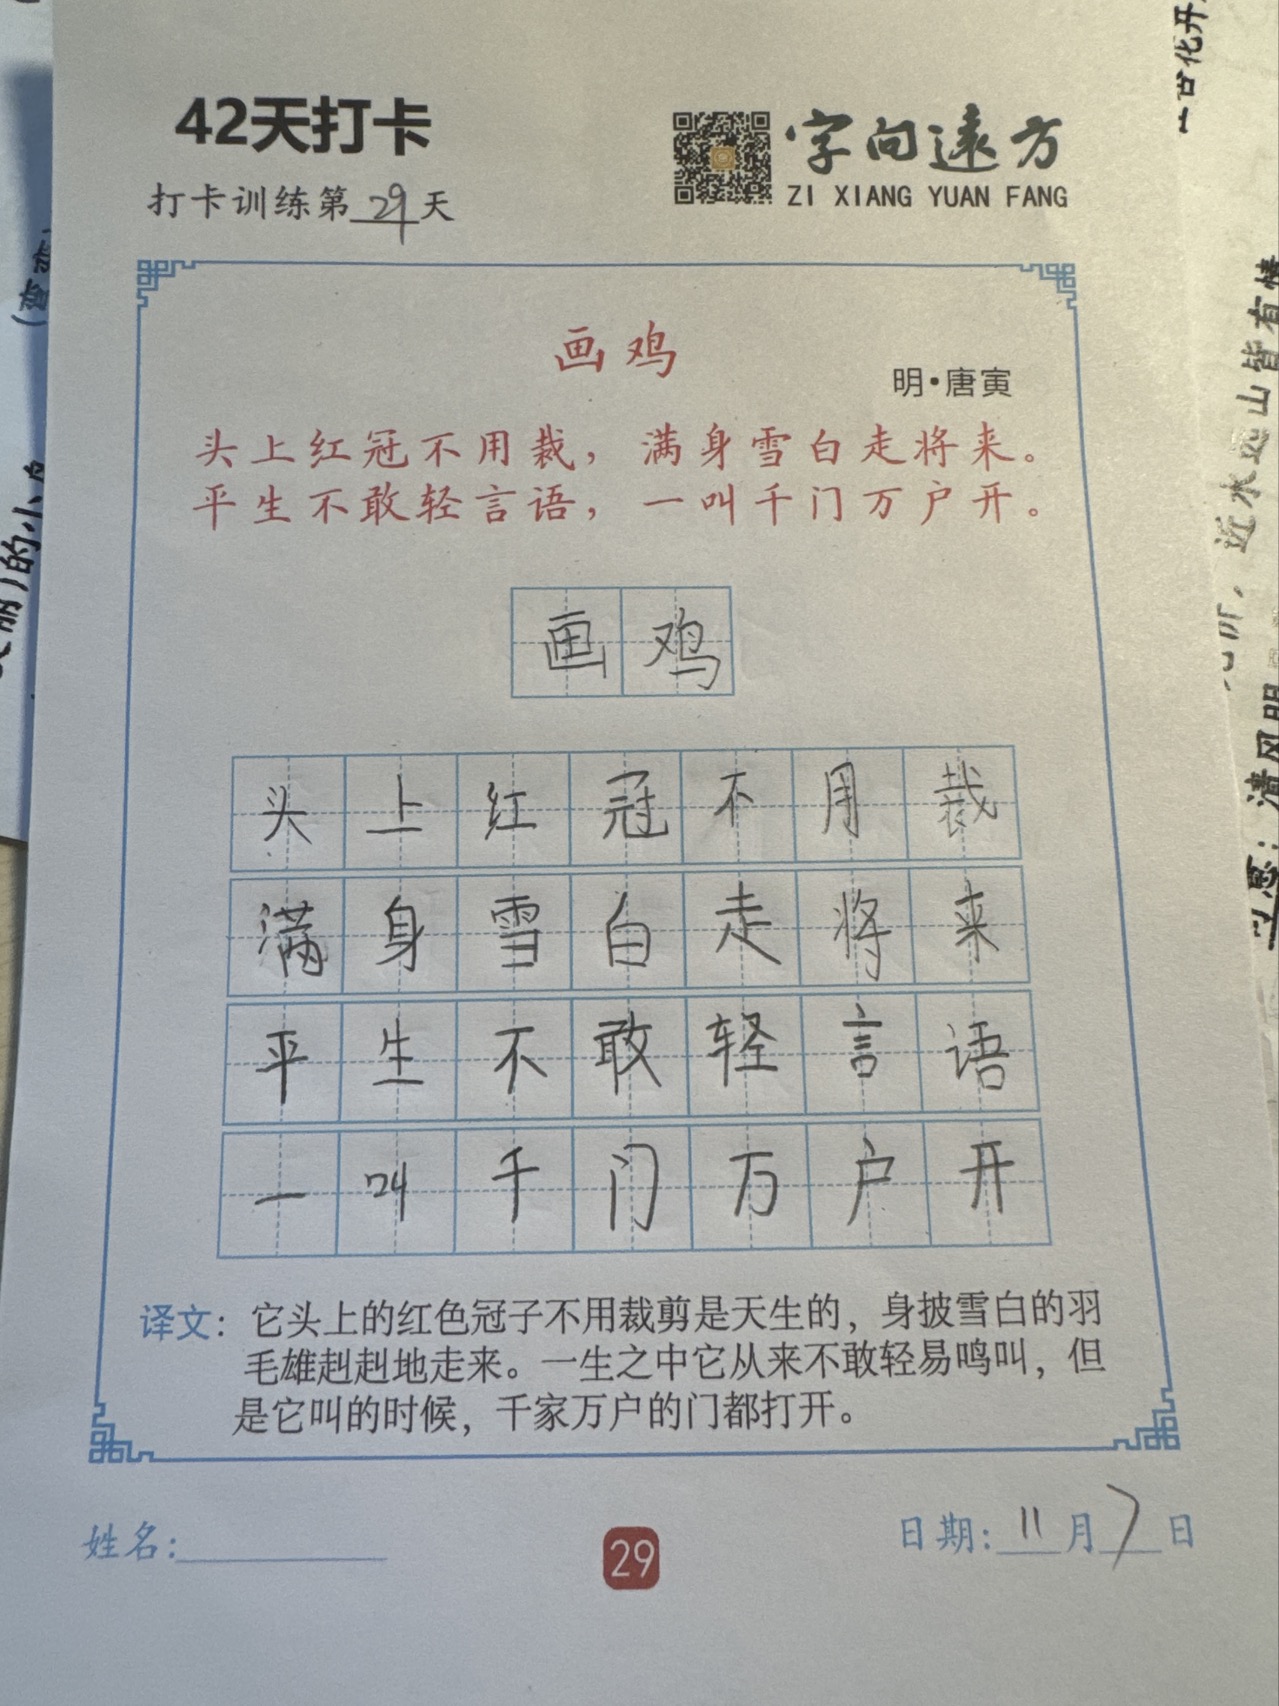 42天打卡
字向远方
ZI XIANG YUAN FANG
打卡训练第29天
画鸡
明·唐寅
头上红冠不用裁，满身雪白走将来。
平生不敢轻言语，一叫千门万户开。
画鸡
头上红冠不用裁
满身雪白走将来
平生不敢轻言语
一叫千门万户开
译文：它头上的红色冠子不用裁剪是天生的，身披雪白的羽
毛雄赳赳地走来。一生之中它从来不敢轻易鸣叫，但
是它叫的时候，千家万户的门都打开。
姓名：
29
日期：11月7日
的小
近水远山皆有情
清风明